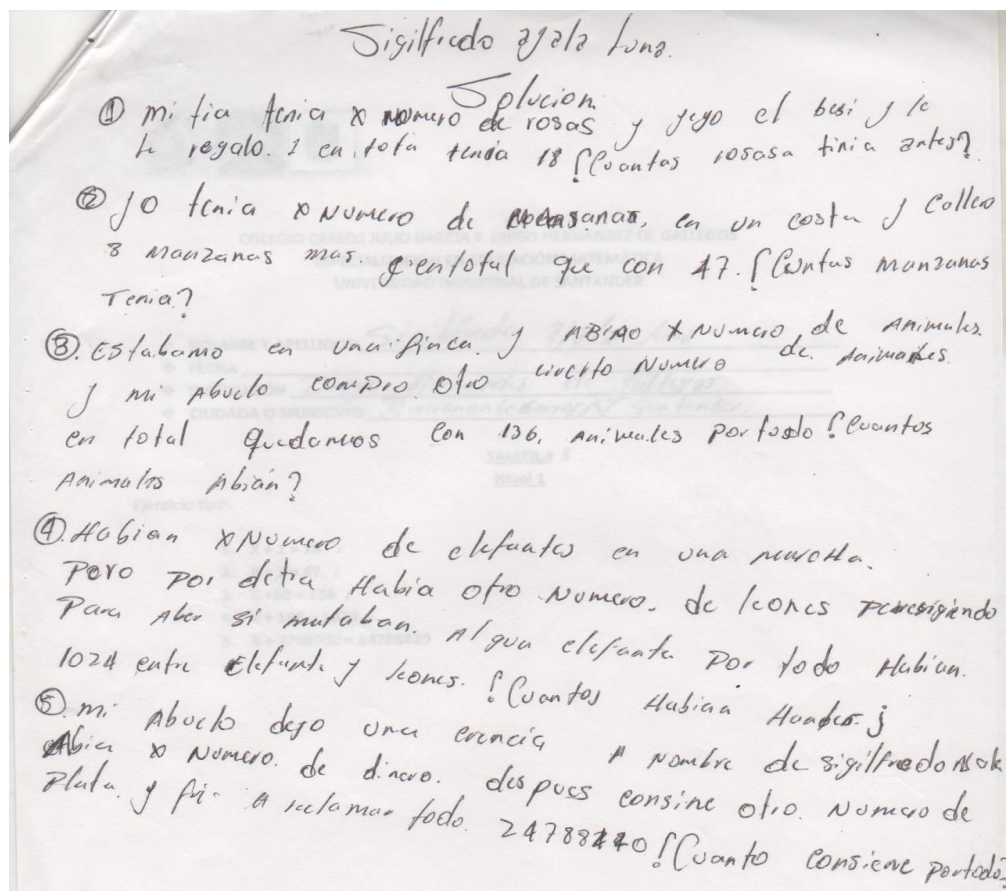 Sigilfredo ayala Luna.
Solucion
① mi tia tenia x numero de rosas y yego el besi y le
le regalo. 1 en tota tenia 18 ¿Cuantas rosasa tinia antes?
② yo tenia x Numero de manzanas, en un costa y Colleo
8 manzanas mas. que en total que con 47. ¿Cuntas manzanas
Tenia?
③. Estabamo en una finca. y ABIAO x Numero de Animales.
y mi Abuelo compro otro cierto Numero de Animales.
en total quedamos con 136, animales por todo ¿Cuantos
Animales Abian?
④. Habian x Numero de elefantes en una
Pero por detra Habia otro Numero. de leones persigiendo
Para Aber si mataban. Algun elefante Por todo Habian.
1024 entre Elefante y leones. ¿Cuantos Habian
⑤. mi Abuelo dejo una erencia A Nombre de sigilfredo
Abia x Numero. de dinero. despues consine otro. Numero de
Plata. y fui a reclamar todo. 24788440 ¿Cuanto consiene portodo?
COLEGIO CARLOS JULIO GARCIA Y DIEGO HERNANDEZ DE GALLEGOS
UNIVERSIDAD INDUSTRIAL DE SANTANDER
TALLER # 3
Nivel 1
Ejercicio tipo: